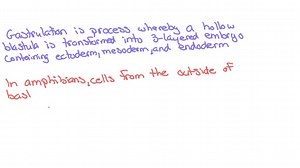 Gastrulation is process whereby a hollow
blastula is transformed into 3-layered embryo
containing ectoderm, mesoderm, and endoderm
In amphibians, cells from the outside of
basl